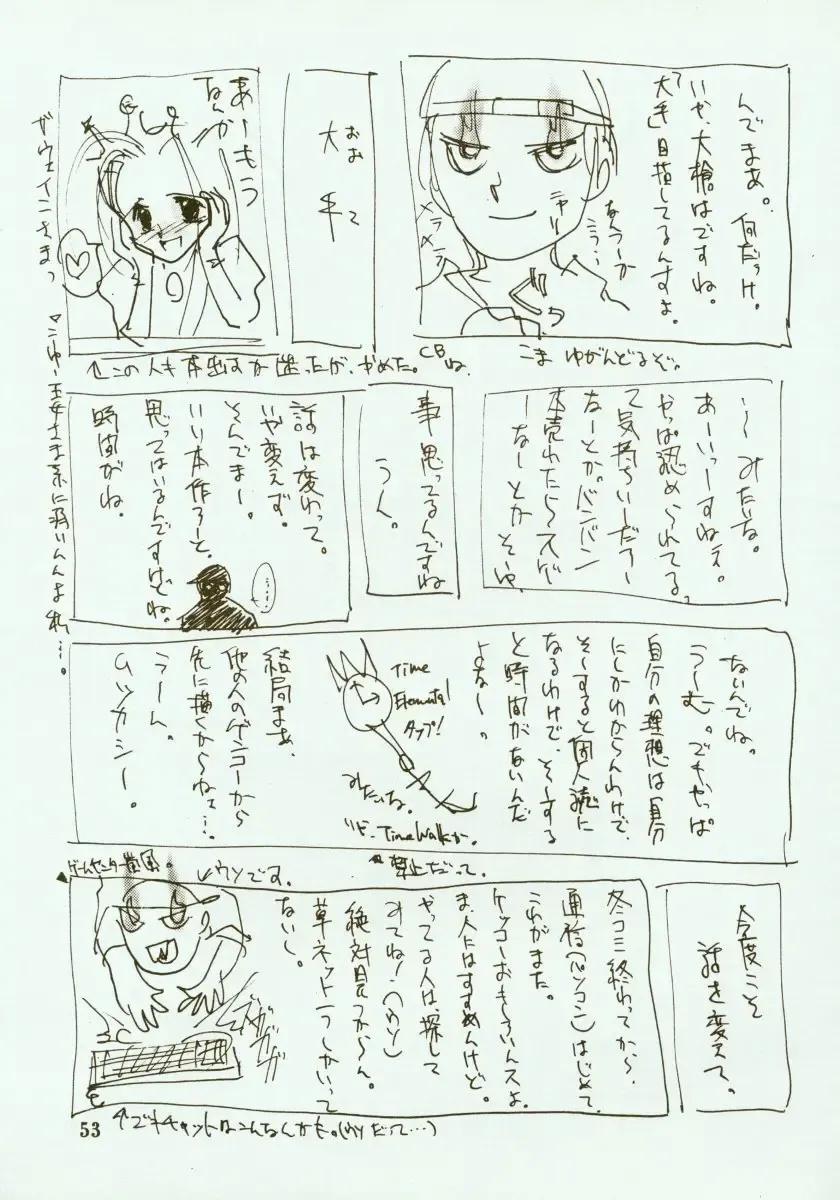 んでまあ。何だっけ。
いや、大槍はですね。
「大手」目指してるんすよ。
なんつーか
こう…
ニヤリ
メラメラ
CBね。
こま ゆがんどるぞ。
大手
おおて
あーもう
なんかー
ガウェインさまっ
↑この人も本出すか迷ったが、やめた。
マンゆー王女さま系に弱いんよ私…。
〜みたいな。
あーいっーすねぇ。
やっぱ認められてる。
て気持ちいーだろー
なーとか。バンバン
本売れたらスゲ
ーなーとかそーゆ
事思ってるんですね
うん。
話は変わって。
いや変えず。
そんでまー。
いい本作ろーと、
思ってはいるんですけどね。
時間がね。
ないんでね。
うーむ。でもやっぱ
自分の理想は自分
にしかわからんわけで、
そーすると個人誌に
なるわけで、そーする
と時間がないんだ
よなー。
Time
Elemental
タップ!
みたいな。
Time Walkか。
禁止だって。
結局まあ、
他の人のゲンコーから
先に描くからねェ…。
うーん。
ムツカシー。
今度こそ
話を変えて。
冬コミ終わってから、
通信(パソコン)はじめて、
これがまた。
ケッコーおもしろいんスよ。
ま、人にはすすめんけど。
やってる人は探して
みてね!(ウソ)
絶対見つからん。
草ネット一つしかいって
ないし。
ゲームセンター嵐風。
↙ウソです。
ガガガガ
↑でもチャットはこんなんかも。(ウソだって…)
53